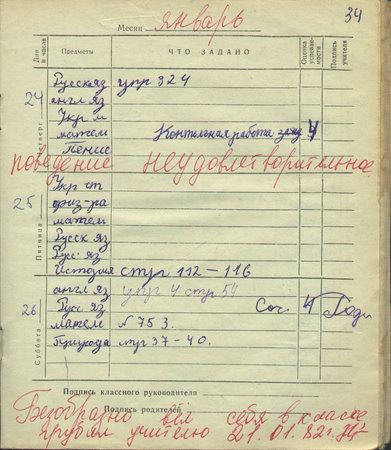 34
Месяц январь
Дни и числа Предметы ЧТО ЗАДАНО Оценка успеваемости Подпись учителя
Русск яз упр 324
24 англ яз
Четверг Укр м
матем Контольная работа 4
Пение
поведение неудовлетворительное
Укр чт
25 физ-ра
Пятница матем
Русск яз
Рус. яз
История стр 112 – 116
англ яз упр 4 стр 54
26 Русс яз Соч. 4
Суббота матем № 753.
Природа стр 37 – 40.
Подпись классного руководителя
Безобразно вёл себя в классе
Подпись родителей
грубил учителю 21.01.82г.